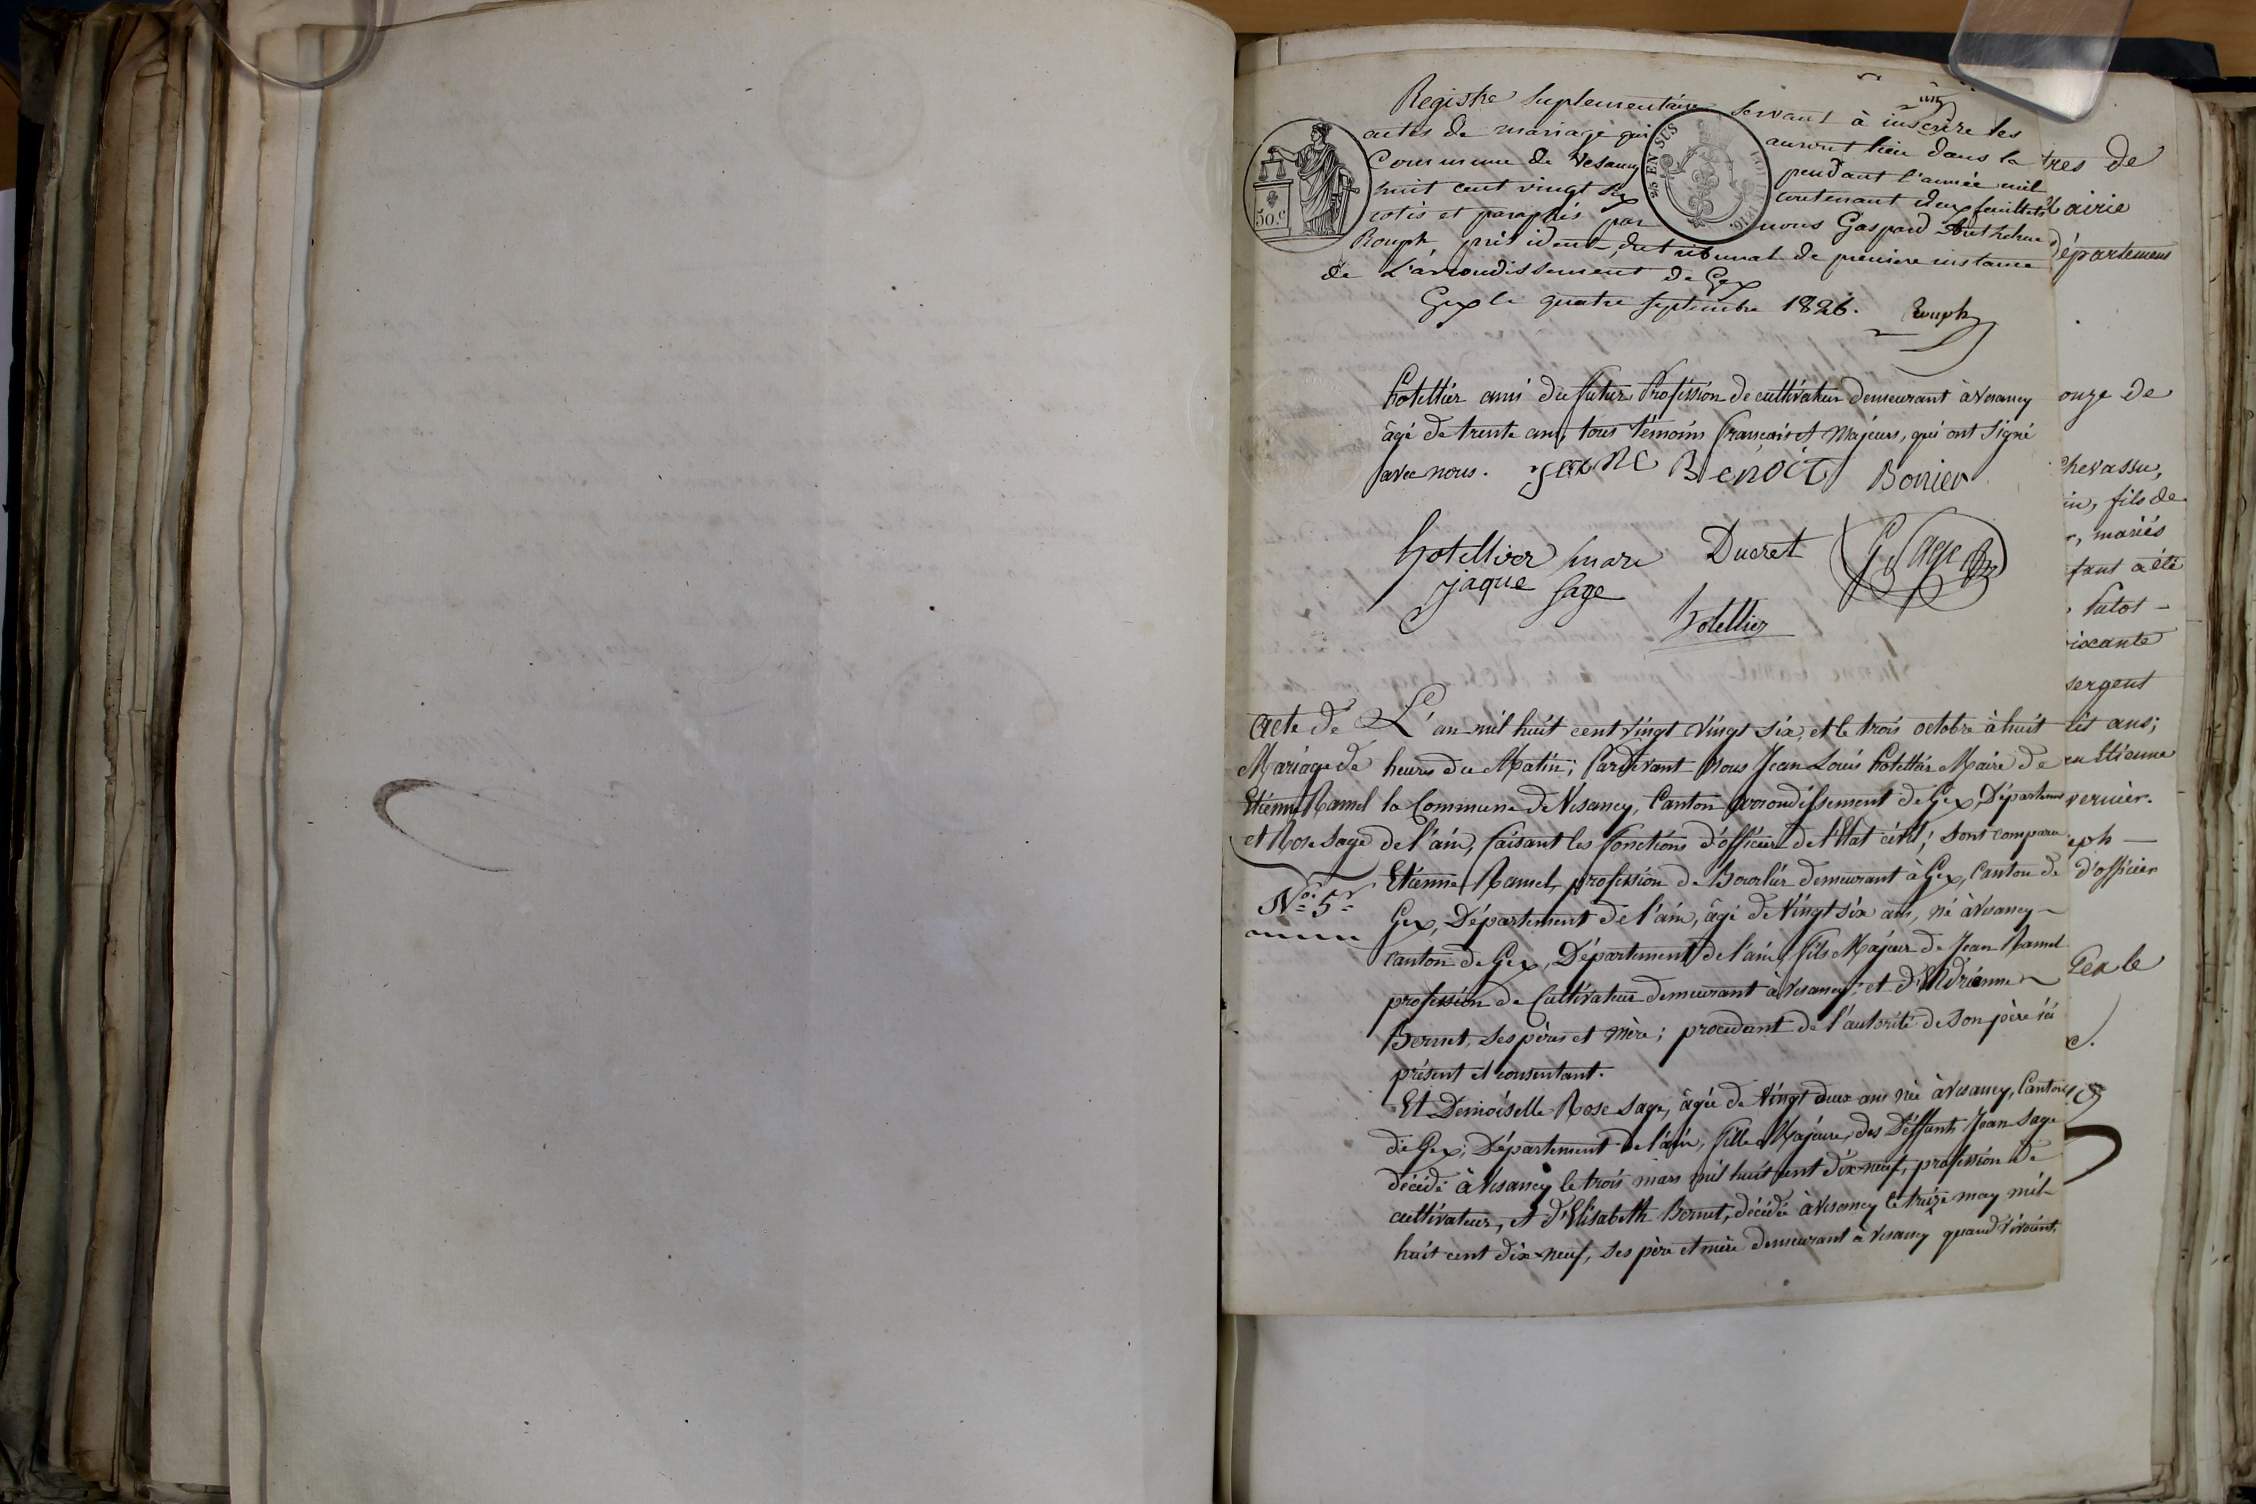 Registre suplementaire servant à inscrire les
actes de mariage qui auront lieu dans la
Commune de Vesancy pendant l'année mil
huit cent vingt six contenant deux feuillets
cotés et paraphés par nous Gaspard
Rouph, président du tribunal de première instance
de L'arrondissement de Gex
Gex le quatre septembre 1826. Rouph
50.c
25 EN SUS
1816
hotellier ami du futur Profession de cultivateur demeurant à Vesancy
âgé de trente ans, tous témoins français et Majeurs, qui ont signé
avec nous. BENOIT Borrier
hotellier mare Ducret G Sage
jaque sage
hotellier
Acte de
Mariage de
Etienne Ramel
et Rose Sage
No. 5.
L'an mil huit cent vingt vingt six, et le trois octobre à huit
heures du Matin; Pardevant Nous Jean Louis hotellier Maire de
la Commune de Vesancy, Canton arrondissement de Gex, Départem
de l'ain, faisant les fonctions d'officier de l'Etat civil; sont comparu
Etienne Ramel, profession de Bourlier demeurant à Gex, Canton de
Gex, Département de l'ain, âgé de Vingt six ans, né à Vesancy
canton de Gex, Département de l'ain, fils Majeur de Jean Ramel
profession de Cultivateur demeurant à Vesancy; et d'Adrienne
Bernet, ses père et mère; procedant de l'autorité de son père ici
présent et consentant.
Et Demoiselle Rose Sage, âgée de Vingt deux ans née à Vesancy, Canton
de Gex; Département de l'ain, fille Majeure, des Déffunts Jean Sage
décédé à Vesancy le trois mars mil huit cent dix neuf, profession de
cultivateur, et d'Elisabeth Bernet, décédée à Vesancy le treize may mil
huit cent dix neuf, ses père et mère demeurant à Vesancy quand vivoint,
tres de
airie
département
onze de
Chevassu,
in, fils de
r, mariés
fant a été
Patot
ixante
sergent
it ans;
en Etienne
vernier.
eph
d'officier
Gex le